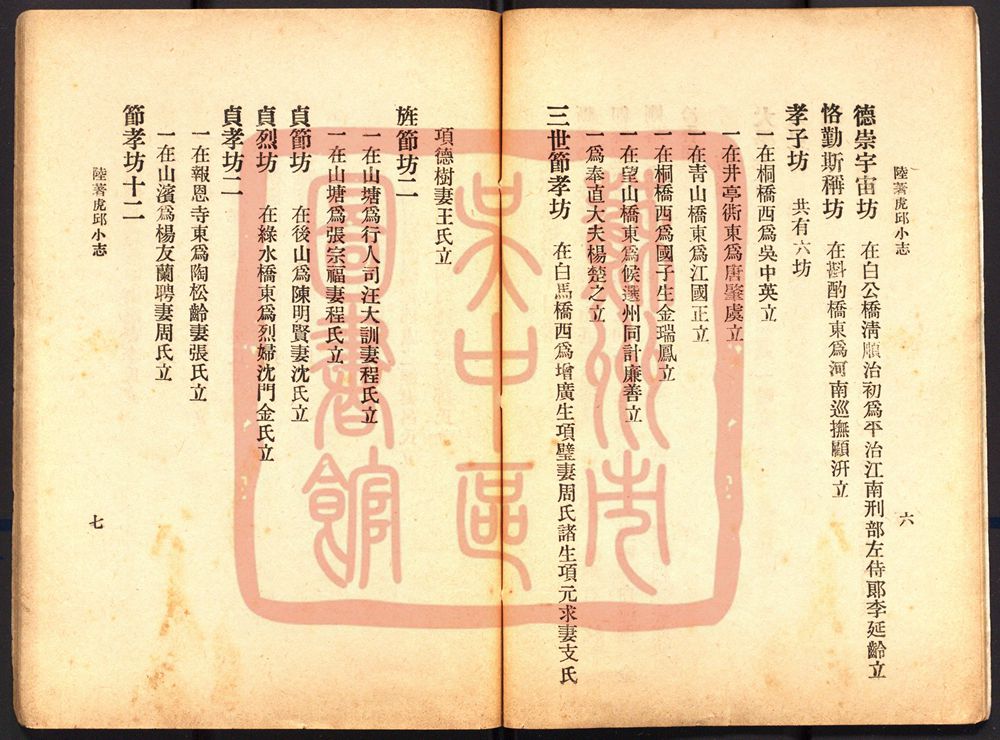 陸著虎邱小志
六
德崇宇宙坊 在白公橋清順治初爲平治江南刑部左侍郎李延齡立
恪勤斯稱坊 在斟酌橋東爲河南巡撫顧汧立
孝子坊 共有六坊
一在桐橋西爲吳中英立
一在井亭街東爲唐肇虞立
一在青山橋東爲江國正立
一在桐橋西爲國子生金瑞鳳立
一在望山橋東爲候選州同計廉善立
一爲奉直大夫楊楚之立
三世節孝坊 在白馬橋西爲增廣生項璧妻周氏諸生項元求妻支氏
項德樹妻王氏立
旌節坊二
一在山塘爲行人司汪大訓妻程氏立
一在山塘爲張宗福妻程氏立
貞節坊 在後山爲陳明賢妻沈氏立
貞烈坊 在綠水橋東爲烈婦沈門金氏立
貞孝坊二
一在報恩寺東爲陶松齡妻張氏立
一在山濱爲楊友蘭聘妻周氏立
節孝坊十二
陸著虎邱小志
七
蘇州市
吳中區
圖書館